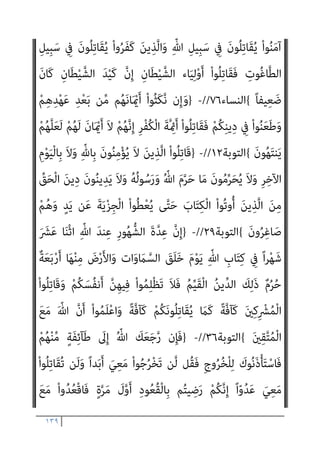 ءَامَنُواْ يُقَٰتِلُونَ فِي سَبِيلِ ٱللَّهِ وَٱلَّذِينَ كَفَرُواْ يُقَٰتِلُونَ فِي سَبِيلِ
ٱلطَّٰغُوتِ فَقَٰتِلُوٓاْ أَوۡلِيَآءَ ٱلشَّيۡطَٰنِ إِنَّ كَيۡدَ ٱلشَّيۡطَٰنِ كَانَ
ضَعِيفاً} النساء٧٦//- {وَإِن نَّكَثُوٓاْ أَيۡمَٰنَهُم مِّنۢ بَعۡدِ عَهۡدِهِمۡ
وَطَعَنُواْ فِي دِينِكُمۡ فَقَٰتِلُوٓاْ أَئِمَّةَ ٱلۡكُفۡرِ إِنَّهُمۡ لَآ أَيۡمَٰنَ لَهُمۡ لَعَلَّهُمۡ
يَنتَهُونَ} التوبة١٢//- {قَٰتِلُواْ ٱلَّذِينَ لَا يُؤۡمِنُونَ بِٱللَّهِ وَلَا بِٱلۡيَوۡمِ
ٱلۡأٓخِرِ وَلَا يُحَرِّمُونَ مَا حَرَّمَ ٱللَّهُ وَرَسُولُهُۥ وَلَا يَدِينُونَ دِينَ ٱلۡحَقِّ
مِنَ ٱلَّذِينَ أُوتُواْ ٱلۡكِتَٰبَ حَتَّىٰ يُعۡطُواْ ٱلۡجِزۡيَةَ عَن يَدٖ وَهُمۡ
صَٰغِرُونَ} التوبة٢٩//- {إِنَّ عِدَّةَ ٱلشُّهُورِ عِندَ ٱللَّهِ ٱثۡنَا عَشَرَ
شَهۡراً فِي كِتَٰبِ ٱللَّهِ يَوۡمَ خَلَقَ ٱلسَّمَٰوَٰتِ وَٱلۡأَرۡضَ مِنۡهَآ أَرۡبَعَةٌ
حُرُمٞ ذَٰلِكَ ٱلدِّينُ ٱلۡقَيِّمُ فَلَا تَظۡلِمُواْ فِيهِنَّ أَنفُسَكُمۡ وَقَٰتِلُواْ
ٱلۡمُشۡرِكِينَ كَآفَّةٗ كَمَا يُقَٰتِلُونَكُمۡ كَآفَّةٗ وَٱعۡلَمُوٓاْ أَنَّ ٱللَّهَ مَعَ
ٱلۡمُتَّقِينَ} التوبة٣٦//- {فَإِن رَّجَعَكَ ٱللَّهُ إِلَىٰ طَآئِفَةٖ مِّنۡهُمۡ
فَٱسۡتَـٔۡذَنُوكَ لِلۡخُرُوجِ فَقُل لَّن تَخۡرُجُواْ مَعِيَ أَبَداً وَلَن تُقَٰتِلُواْ
مَعِيَ عَدُوّاً إِنَّكُمۡ رَضِيتُم بِٱلۡقُعُودِ أَوَّلَ مَرَّةٖ فَٱقۡعُدُواْ مَعَ
١٣٩